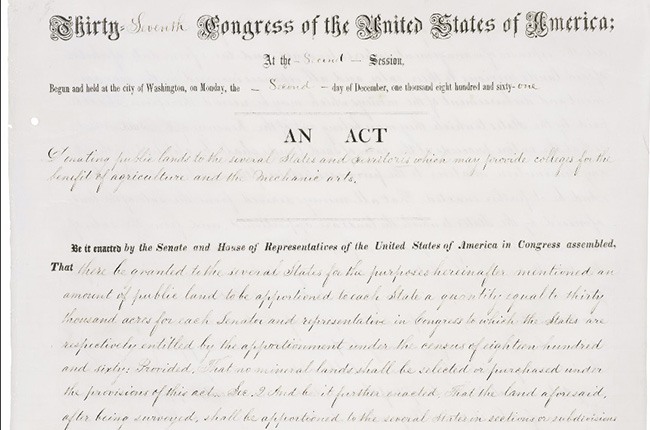 Thirty-Seventh Congress of the United States of America;
At the Second Session,
Begun and held at the city of Washington, on Monday, the Second day of December, one thousand eight hundred and sixty-one
AN ACT
Donating public lands to the several States and Territories which may provide colleges for the
benefit of agriculture and the Mechanic arts.
Be it enacted by the Senate and House of Representatives of the United States of America in Congress assembled,
That there be granted to the several States for the purposes hereinafter mentioned an
amount of public land to be apportioned to each State a quantity equal to thirty
thousand acres for each Senator and representative in Congress to which the States are
respectively entitled by the apportionment under the census of eighteen hundred
and sixty: Provided, That no mineral lands shall be selected or purchased under
the provisions of this act. Sec. 2 And be it further enacted, That the land aforesaid,
after being surveyed, shall be apportioned to the several States in sections or subdivisions